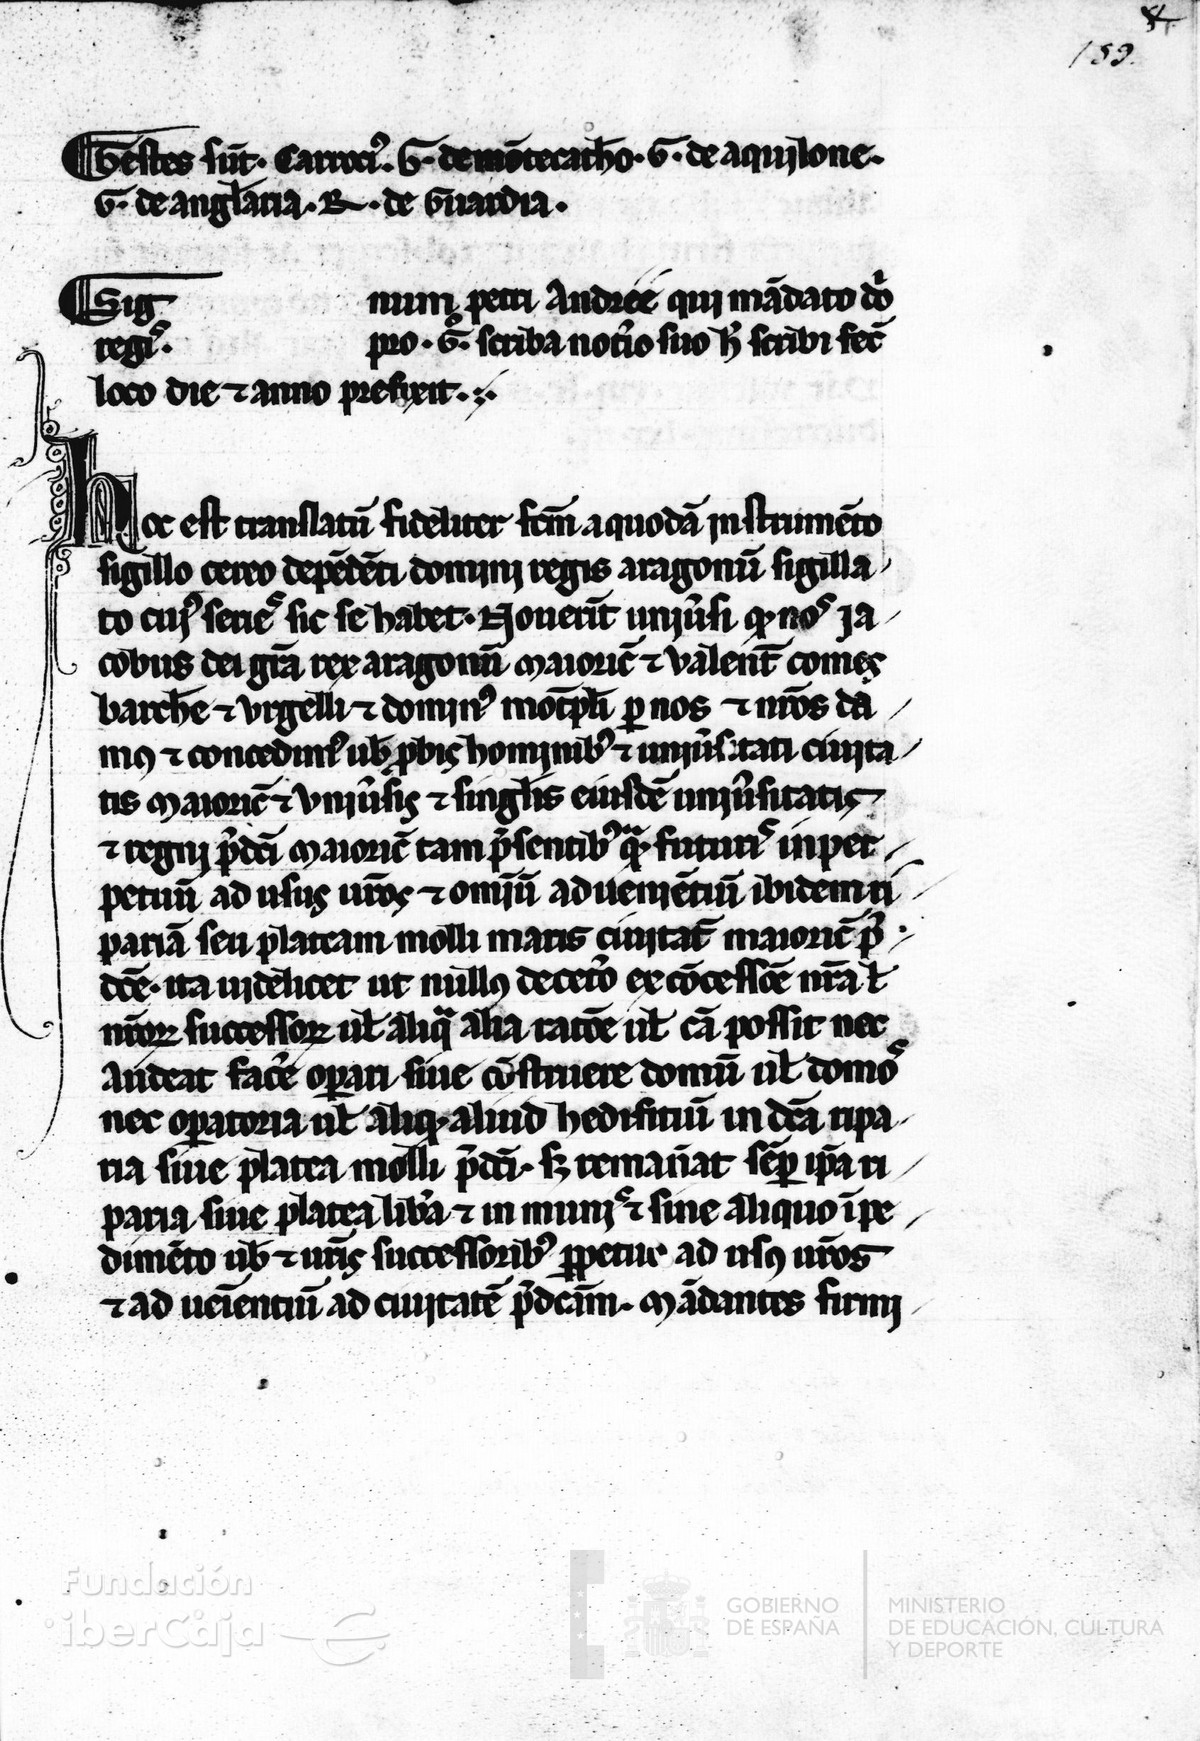 159.
Testes sūt. Carroci᷒. G. de mōtecatħo. G. de aquilone.
G. de angłaria. R. de Guardia.
Sig num petri Andree qui mādato dō
regis. pro. G. scriba not̄io suo h̄ scribi fec̄
loco die ⁊ anno prefixit.
Hoc est translatū fideliter fc̄m a quodā instrumēto
sigillo cereo depēdēti domini regis aragonū sigilla
to cui᷒ series sic se habet. Nouerīt uniu̓si ꝙ nos ja
cobus dei gr̄a rex aragonū maioric̄ ⁊ valent̄ comes
barch̄e ⁊ vrgelli ⁊ domin᷒ mōtp̄li ꝑ nos ⁊ nr̄os da
mꝯ ⁊ concedim᷒ ub̄ ꝓbis hominib᷒ ⁊ uniu̓sitati ciuita
tis maioric̄ ⁊ vniu̓sis ⁊ singł̄is eiusdē uniu̓sitatis
⁊ regni p̄dc̄i maioric̄ tam p̄sentib᷒ qᷓ futuris in per
petuū ad usus ur̄os ⁊ om̄iū adueniētiū ibidem ri
pariā seu plateam molli maris ciuitat̄ maioric̄ p̄
dc̄e. ita uidelicet ut nullꝯ de cet̓o ex cōcessōe nr̄a ł
nr̄oꝝ successoꝝ uł aliqᷓ alia rat̄oe uł cā possit nec
audeat fac̓e oꝑari siue cōstruere domū uł domos
nec oꝑatoria uł aliqꝫ aliud hedifitiū in dc̄a ripa
ria siue platea molli p̄dc̄i. sꝫ remaneat sēꝑ ip̄a ri
paria siue platea lib̓a ⁊ in munis ⁊ sine aliquo īpe
dimēto ub̄ ⁊ ur̄is successorib᷒ ꝑpetuo ad usꝯ ur̄os
⁊ ad ueīentiū ad ciuitatē p̄dc̄am. Mādantes firmi
Fundación
iberCaja
GOBIERNO
DE ESPAÑA
MINISTERIO
DE EDUCACIÓN, CULTURA
Y DEPORTE